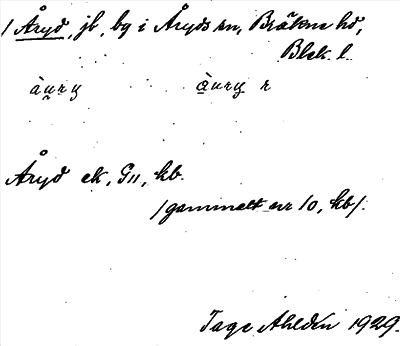 / Åryd, jb, by i Åryds sn, Bräkne hd,
Blek. l.
Åryd ek, G11, kb.
/gammalt nr 10, kb/.
Tage Ahldén 1929.